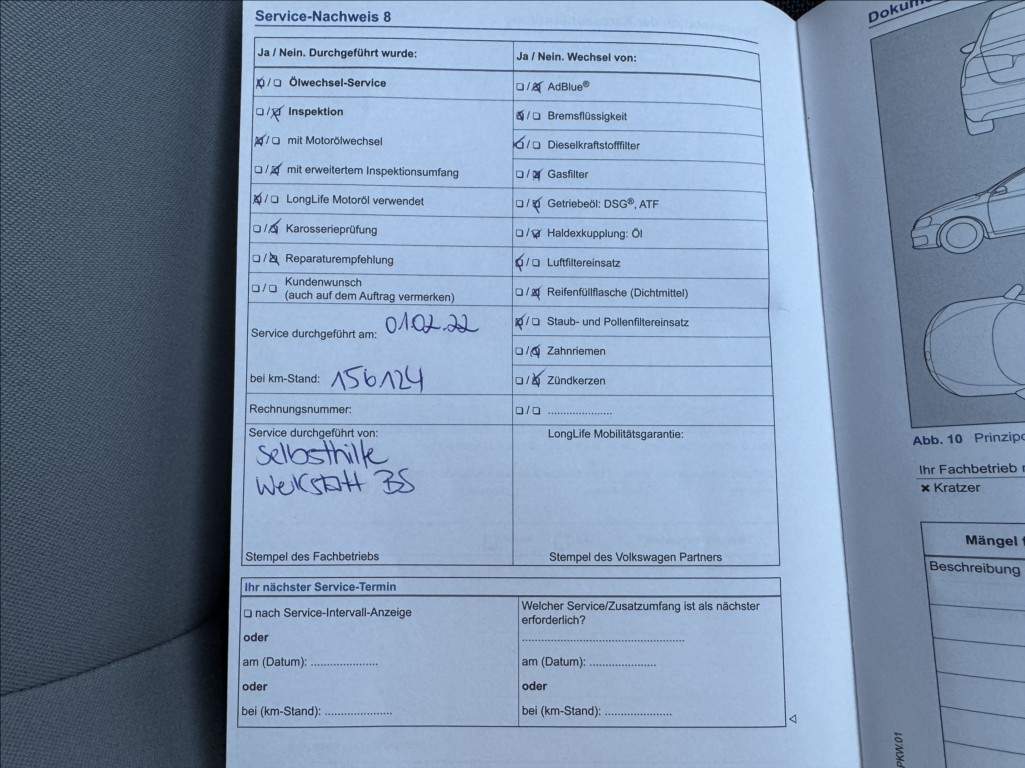 Service-Nachweis 8
Ja / Nein. Durchgeführt wurde:
☒ / ☐ Ölwechsel-Service
☐ / ☒ Inspektion
☒ / ☐ mit Motorölwechsel
☐ / ☒ mit erweitertem Inspektionsumfang
☒ / ☐ LongLife Motoröl verwendet
☐ / ☒ Karosserieprüfung
☐ / ☒ Reparaturempfehlung
☐ / ☐ Kundenwunsch
(auch auf dem Auftrag vermerken)
Service durchgeführt am: 01.02.22
bei km-Stand: 156124
Rechnungsnummer:
Service durchgeführt von:
Selbsthilfe
Werkstatt BS
Stempel des Fachbetriebs
Ja / Nein. Wechsel von:
☐ / ☒ AdBlue®
☒ / ☐ Bremsflüssigkeit
☒ / ☐ Dieselkraftstofffilter
☐ / ☒ Gasfilter
☐ / ☒ Getriebeöl: DSG®, ATF
☐ / ☒ Haldexkupplung: Öl
☒ / ☐ Luftfiltereinsatz
☐ / ☒ Reifenfüllflasche (Dichtmittel)
☒ / ☐ Staub- und Pollenfiltereinsatz
☐ / ☒ Zahnriemen
☐ / ☒ Zündkerzen
☐ / ☐ .....................
LongLife Mobilitätsgarantie:
Stempel des Volkswagen Partners
Ihr nächster Service-Termin
☐ nach Service-Intervall-Anzeige
oder
am (Datum): .....................
oder
bei (km-Stand): .....................
Welcher Service/Zusatzumfang ist als nächster
erforderlich?
..................................................
am (Datum): .....................
oder
bei (km-Stand): .....................
Abb. 10
Ihr Fachbetrieb
× Kratzer
Mängel
Beschreibung
PKW.01